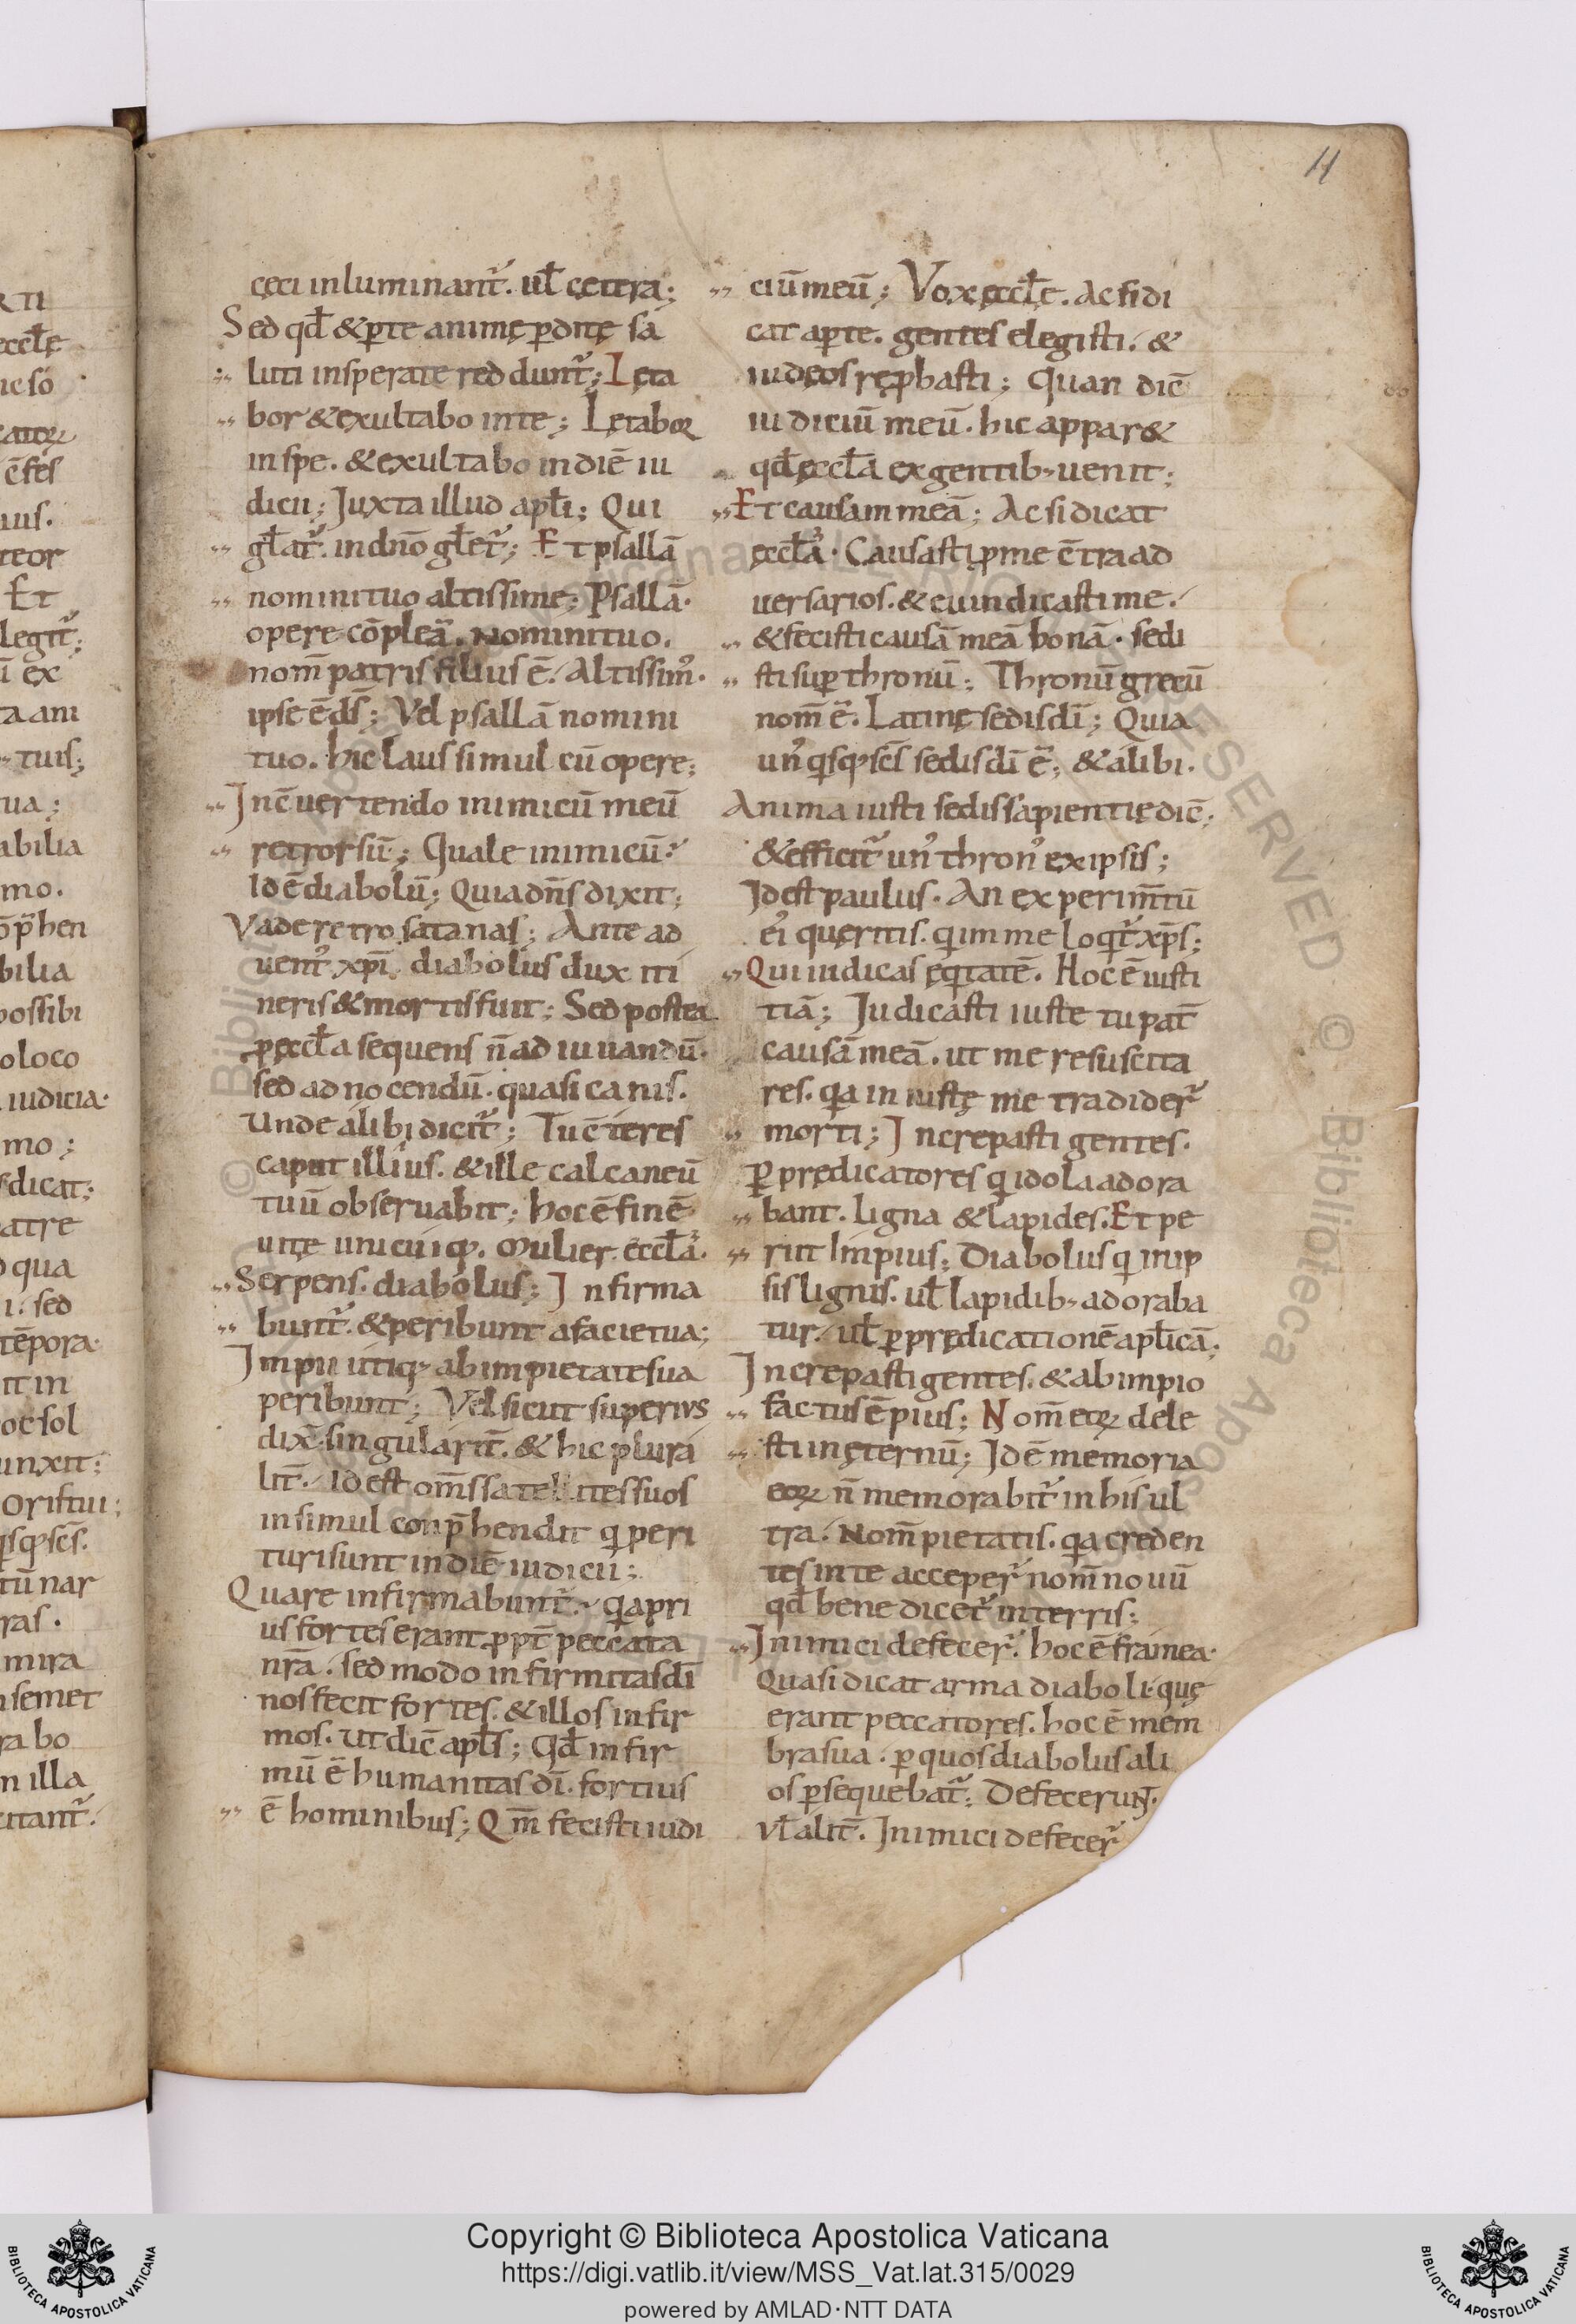 11
cęci inluminant᷑. ul̄ cętera;
Sed qđ & ꝑte animę ꝑditę sa
luti insperate reddunt᷑; Lęta
bor & exultabo in te; Lętabor
in spe. & exultabo in diē iu
dicii; Juxta illud apłi; Qui
głat᷑. in dn̄o głet᷑; Et psallā
nomini tuo altissime; Psallā.
opere cōpleā. Nomini tuo.
nom̄ patris filius ē. Altissim᷒.
ipse ē ds̄; Vel psallā nomini
tuo. hic laus simul cū opere;
In c̄uertendo inimicū meū
retrorsū; Quale inimicū?
Id ē diabolū; Quia dn̄s dixit;
Vade retro satanas; Ante ad
uent᷒ xp̄i diabolus dux iti
neris & mortis fuit; Sed postea
ꝑ ęccła sequens n̄ ad iuuandū.
sed ad nocendū. quasi canis.
Unde alibi dicit᷑; Tu c̄teres
caput illius. & ille calcaneū
tuū obseruabit; hoc ē finē
uitę unicuiq;. Mulier. eccła.
Serpens. diabolus; Infirma
bunt᷑. & peribunt a facie tua;
Impii utiq; ab impietate sua
peribunt; Vel sicut superius
dix̄ singularit̄. & hic plura
lit̄. Id est om̄s satellites suos
insimul conp̄hendit qi peri
turi sunt in diē iudicii;
Quare infirmabunt᷑. qia pri
us fortes erant ꝓpt̄ peccata
nr̄a. sed modo infirmitas dī
nos fecit fortes. & illos infir
mos. ut dic̄ apłs; Qđ infir
mū ē humanitas dī. fortius
ē hominibus; Qm̄ fecisti iudi
ciū meū; Vox ęccłę. Ac si di
cat aꝑte. gentes elegisti. &
iudęos ręꝓbasti; Quan dic̄
iudiciū meū. hic appar&
qđ ęccła ex gentib; uenit;
Et causam meā; Ac si dicat
ęccła. Causasti ꝓ me c̄tra ad
uersarios. & euindicasti me.
& fecisti causā meā bonā. sedi
sti suꝑ thronū; Thronū grecū
nom̄ ē. Latinę sedis dī; Quia
un᷒ qisq; sc̄s sedis dī ē; & alibi.
Anima iusti sedis sapientię dic̄;
& efficit᷑ un᷒ thron᷒ ex ipsis;
Id est paulus. An experim̄tū
ei᷒ quęritis. qi in me loqit᷑ xp̄s;
Qui iudicas ęqitatē. Hoc ē iusti
tiā; Judicasti iuste tu pat̄
causā meā. ut me resuscita
res. qia in iustę me tradider᷑
morti; Increpasti gentes.
ꝑ prędicatores qi idola adora
bant. ligna & lapides. Et pe
riit impius; Diabolus qi in ip
sis lignis. ul̄ lapidib; adoraba
tur. ul̄ ꝑ prędicationē apłicā;
Increpasti gentes. & ab impio
factus ē pius; Nom̄ eoꝝ dele
sti in ęternū; Id ē memoria
eoꝝ n̄ memorabit᷑ in his ul
tra. Nom̄ pietatis. qia creden
tes in te acceper᷑ nom̄ nouū
qđ benedicet᷑ in terris;
Inimici defecer᷑. hoc ē framea.
Quasi dicat arma diaboli. quę
erant peccatores. hoc ē mem
bra sua. ꝑ quos diabolus ali
os ꝑsequebat᷑; Defecerunt.
Vl̄ alit̄. Inimici defecer᷑
Copyright © Biblioteca Apostolica Vaticana
https://digi.vatlib.it/view/MSS_Vat.lat.315/0029
powered by AMLAD·NTT DATA